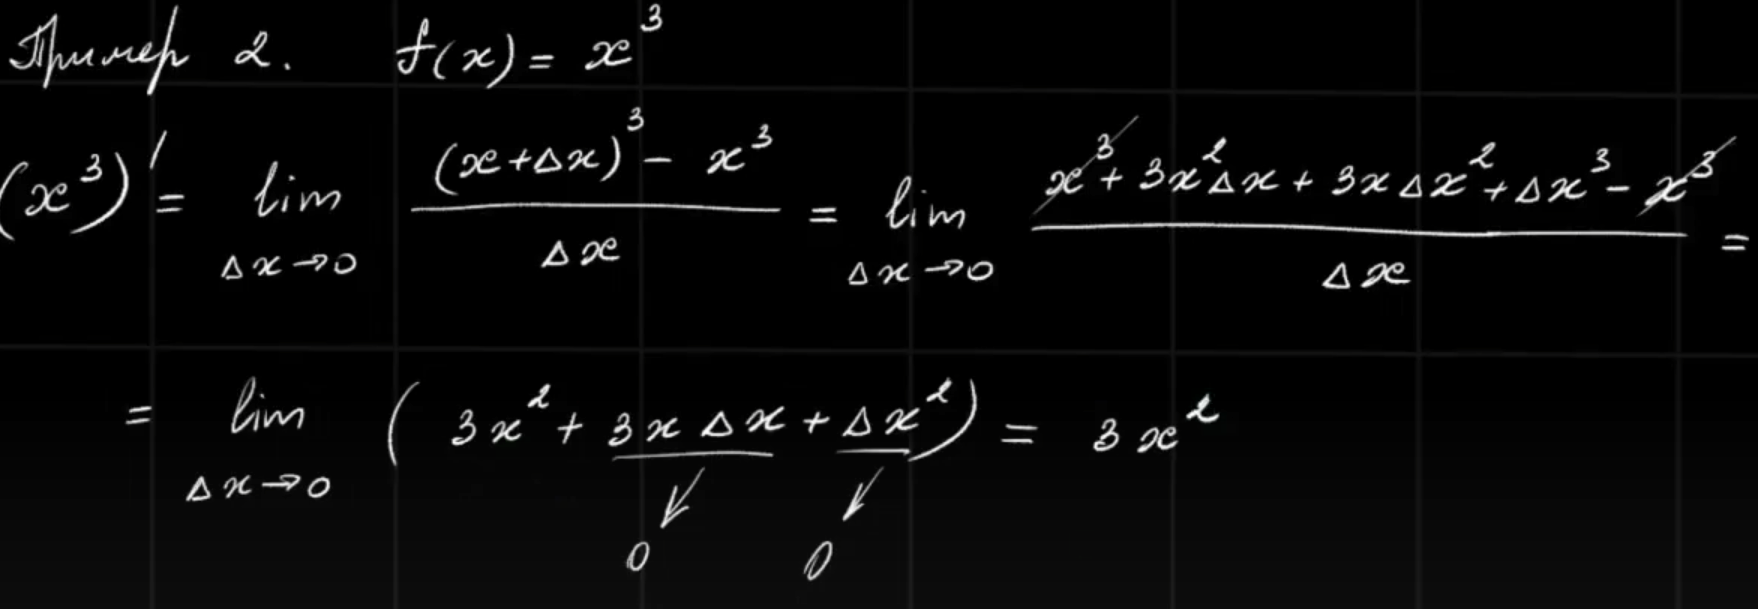 Пример 2. f(x) = x³
(x³)' = lim Δx→0 ((x+Δx)³ − x³)/Δx = lim Δx→0 (x³ + 3x²Δx + 3xΔx² + Δx³ − x³)/Δx =
= lim Δx→0 (3x² + 3xΔx + Δx²) = 3x²
0 0